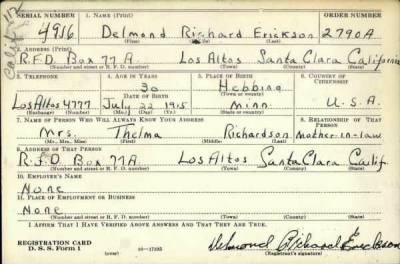 SERIAL NUMBER 1. NAME (Print) ORDER NUMBER
4916 Delmond Richard Erickson 2790A
(First) (Middle) (Last)
2. ADDRESS (Print)
R.F.D. Box 77A Los Altos Santa Clara California
(Number and street or R. F. D. number) (Town) (County) (State)
3. TELEPHONE 4. AGE IN YEARS 5. PLACE OF BIRTH 6. COUNTRY OF CITIZENSHIP
30 Hebbing
DATE OF BIRTH (Town or county)
Los Altos 4777 July 22 1915 Minn. U.S.A.
(Exchange) (Number) (Mo.) (Day) (Yr.) (State or country)
7. NAME OF PERSON WHO WILL ALWAYS KNOW YOUR ADDRESS 8. RELATIONSHIP OF THAT PERSON
Mrs. Thelma Richardson mother-in-law
(Mr., Mrs., Miss) (First) (Middle) (Last)
9. ADDRESS OF THAT PERSON
R.F.D Box 77A Los Altos Santa Clara Calif.
(Number and street or R. F. D. number) (Town) (County) (State)
10. EMPLOYER'S NAME
None
11. PLACE OF EMPLOYMENT OR BUSINESS
None
(Number and street or R. F. D. number) (Town) (County) (State)
I AFFIRM THAT I HAVE VERIFIED ABOVE ANSWERS AND THAT THEY ARE TRUE.
REGISTRATION CARD
D. S. S. Form 1 (over) 16—17105 Delmond Richard Erickson
(Registrant's signature)